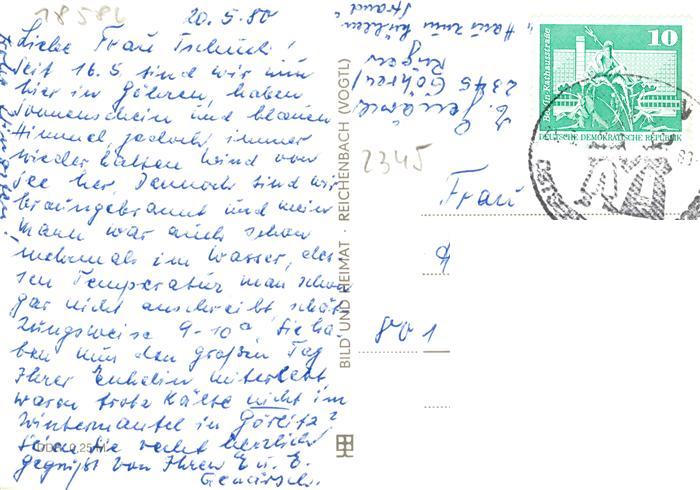 18586
20.5.80
Liebe Frau
Seit 16.5. sind wir nun
hier in Göhren, haben
Sonnenschein und blauen
Himmel, jedoch immer
wieder kalten Wind von
See her. Dennoch sind wir
braungebrannt und mein
Mann war auch schon
mehrmals im Wasser, des-
sen Temperatur man schon
gar nicht anschreibt, schät-
zungsweise 9-10°. Sie ha-
ben nun den großen Tag
Ihrer Enkelin miterlebt,
waren trotz Kälte nicht im
Wintermantel in Görlitz?
Seien Sie recht herzlich
gegrüßt von Ihren E. u. E.
DDR 0,25 M
BILD UND HEIMAT · REICHENBACH (VOGTL)
E.
2345 Göhren/
Rügen
Haus zum
Strand"
2345
10
Berlin, Rathausstraße
DEUTSCHE DEMOKRATISCHE REPUBLIK
Frau
801